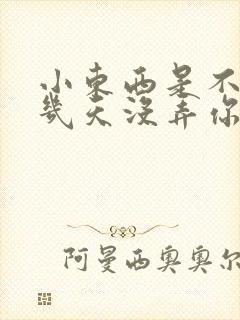 小东西是不
几天没弄你
阿曼西奥奥尔